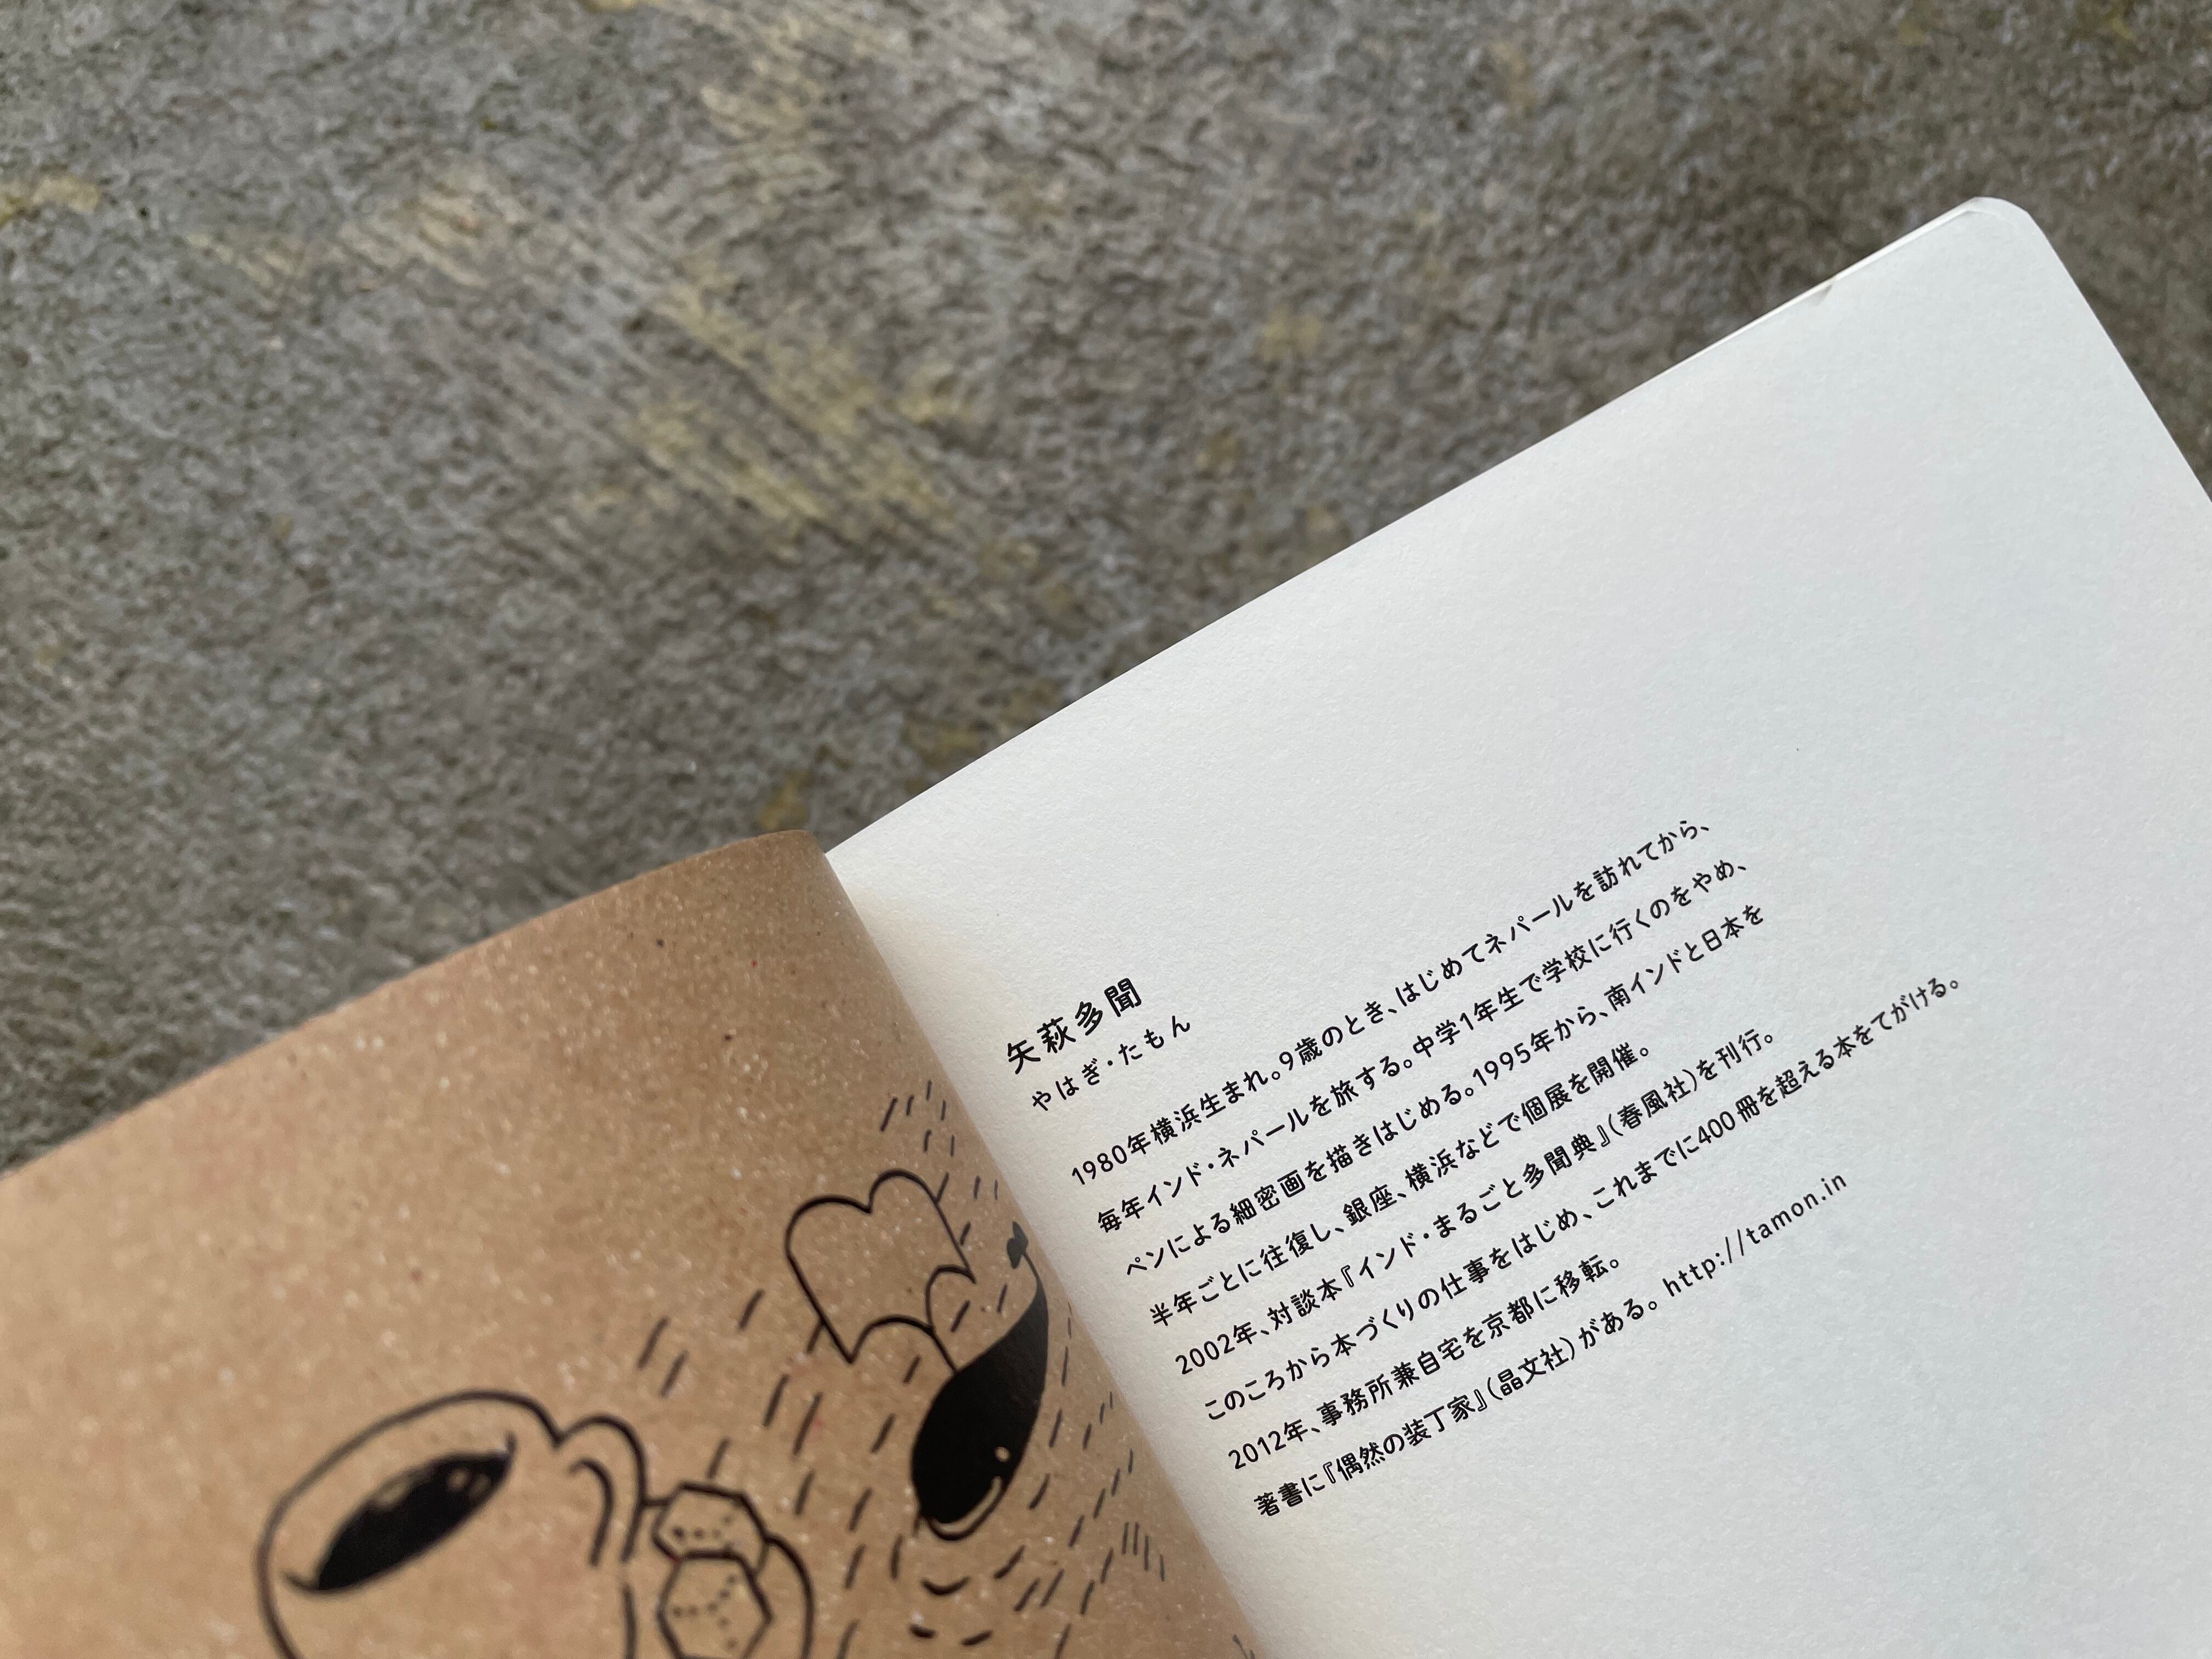 矢萩多聞
やはぎ・たもん
1980年横浜生まれ。9歳のとき、はじめてネパールを訪れてから、
毎年インド・ネパールを旅する。中学1年生で学校に行くのをやめ、
ペンによる細密画を描きはじめる。1995年から、南インドと日本を
半年ごとに往復し、銀座、横浜などで個展を開催。
2002年、対談本『インド・まるごと多聞典』(春風社)を刊行。
このころから本づくりの仕事をはじめ、これまでに400冊を超える本をてがける。
2012年、事務所兼自宅を京都に移転。
著書に『偶然の装丁家』(晶文社)がある。 http://tamon.in